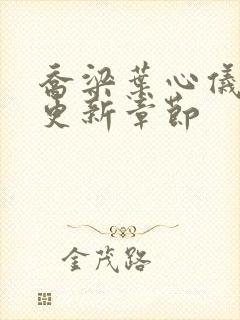 乔梁叶心仪
更新章节
金茂路